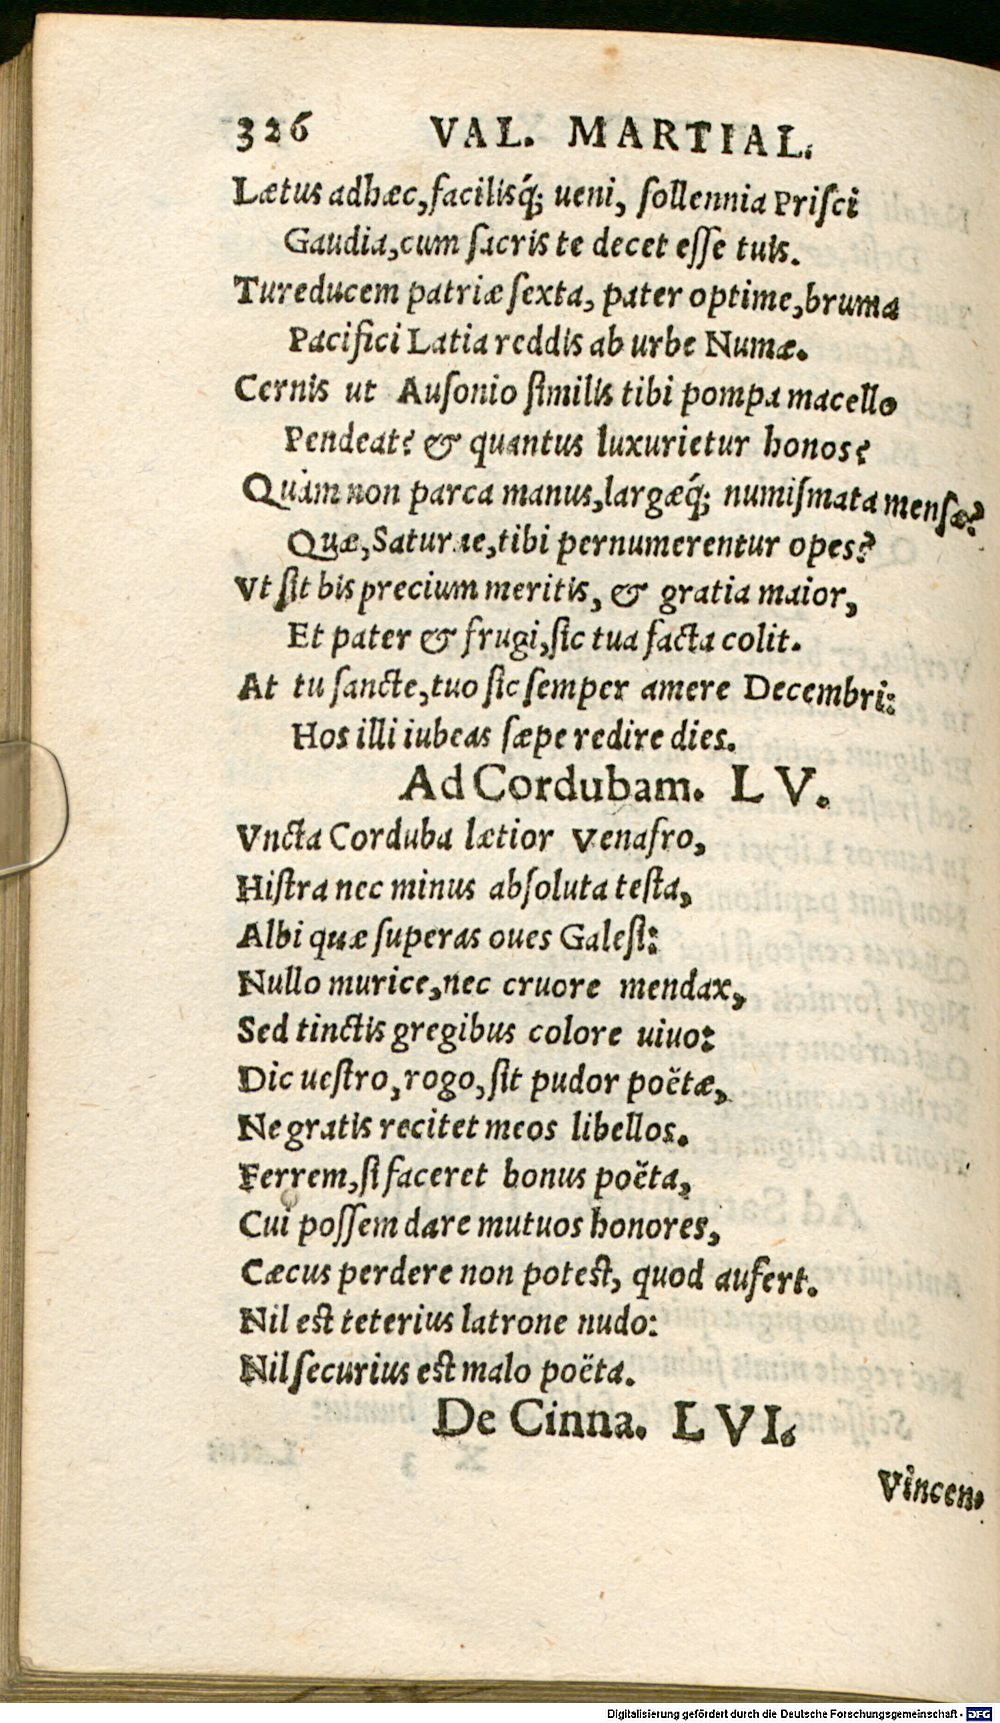 326 VAL. MARTIAL.
Lætus adhæc, facilisq́; ueni, sollennia Prisci
Gaudia, cum sacris te decet esse tuis.
Tu reducem patriæ sexta, pater optime, bruma
Pacifici Latia reddis ab urbe Numæ.
Cernis ut Ausonio similis tibi pompa macello
Pendeat? & quantus luxurietur honos?
Quàm non parca manus, largæq́; numismata mensæ?
Quæ, Saturne, tibi pernumerentur opes?
Vt sit bis precium meritis, & gratia maior,
Et pater & frugi, sic tua facta colit.
At tu sancte, tuo sic semper amere Decembri:
Hos illi iubeas sæpe redire dies.
Ad Cordubam. LV.
Vncta Corduba lætior Venafro,
Histra nec minus absoluta testa,
Albi quæ superas oues Galesi:
Nullo murice, nec cruore mendax,
Sed tinctis gregibus colore uiuo:
Dic uestro, rogo, sit pudor poëtæ,
Ne gratis recitet meos libellos.
Ferrem, si faceret bonus poëta,
Cui possem dare mutuos honores,
Cæcus perdere non potest, quod aufert.
Nil est teterius latrone nudo:
Nil securius est malo poëta.
De Cinna. LVI.
Vincen.
Digitalisierung gefördert durch die Deutsche Forschungsgemeinschaft - DFG